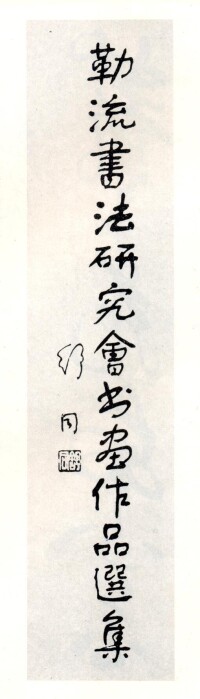 勒流書法研究會书画作品選集
舒同